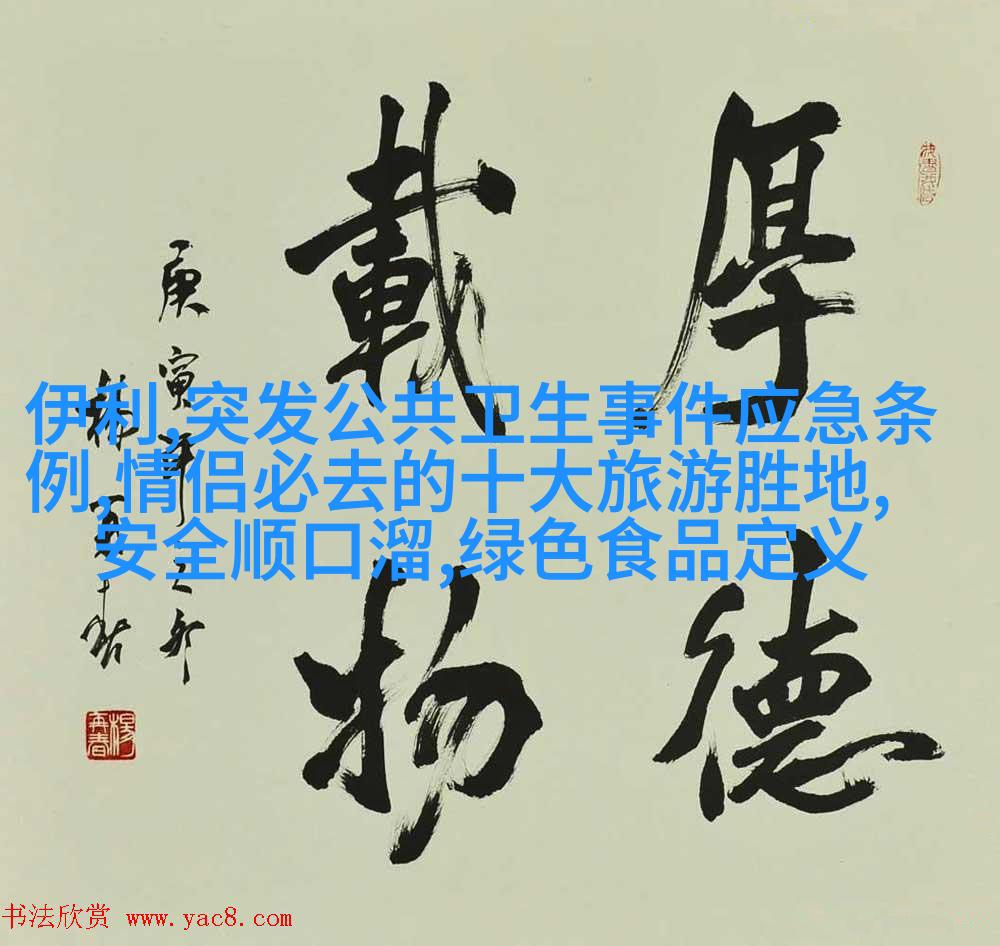 厚德
載物
庚寅年之卯
楊再春
楊再春
伊利,突发公共卫生事件应急条
例,情侣必去的十大旅游胜地,
安全顺口溜,绿色食品定义
书法欣赏 www.yac8.com